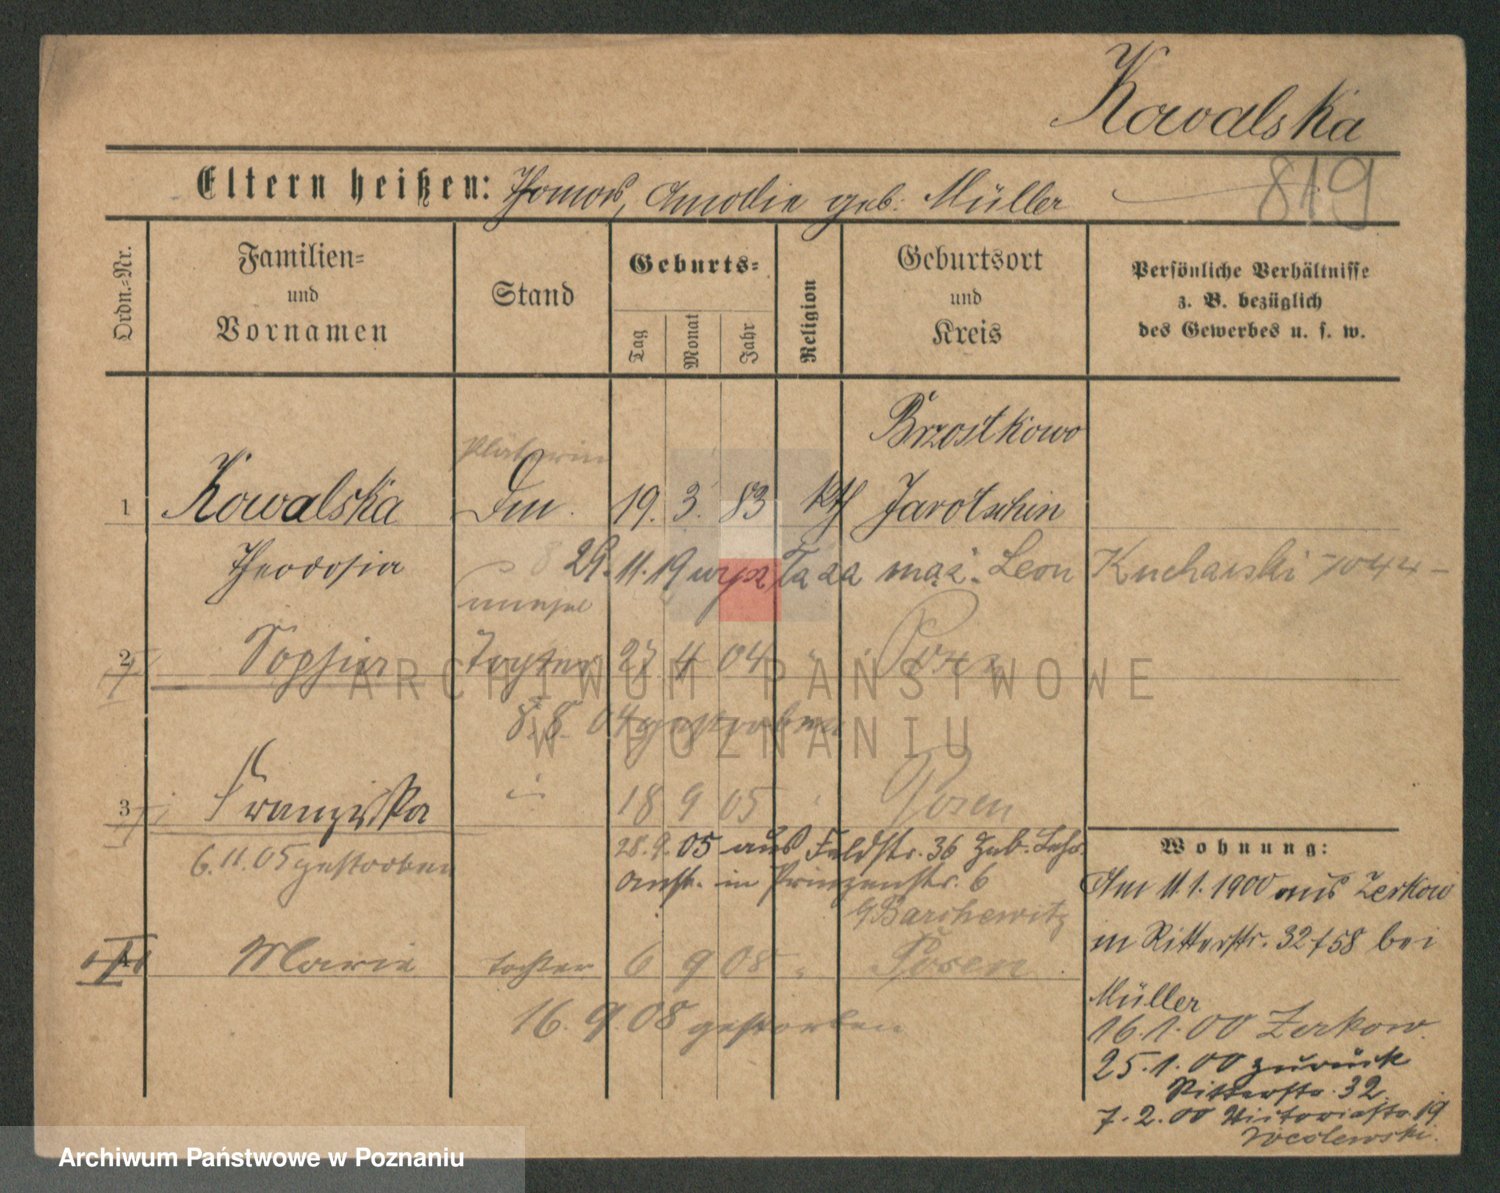 Kowalska
819
Eltern heißen: Thomas, Amalie geb. Müller
Ordn.-Nr.
Familien-
und
Vornamen
Stand
Geburts-
Tag
Monat
Jahr
Religion
Geburtsort
und
Kreis
Persönliche Verhältnisse
z. B. bezüglich
des Gewerbes u. s. w.
Plätterin
Brzostkowo
1 Kowalska 19. 3. 83 kth Jarotschin
Theodosia 29. 11. 19 mąż. Leon Kucharski
2 Sophia Tochter 27 4 04 " Posen
8.8. 04 gestorben
3 Franziska 18 9 05 " Posen
6.11.05 gestorben
28.9.05 aus Feldstr. 36 Heb. Lehr.
Anst. in Prinzenstr. 6
Barchewitz
4 Marie tochter 6 9 08 " Posen
16. 9. 08 gestorben
Wohnung:
Am 11.1.1900 aus Zerkow
in Ritterstr. 32 f58 bei
Müller
16.1.00 Zerkow.
25.1.00 zurück
Ritterstr. 32.
7.2.00 Victoriastr. 19
ARCHIWUM PAŃSTWOWE
W POZNANIU
Archiwum Państwowe w Poznaniu